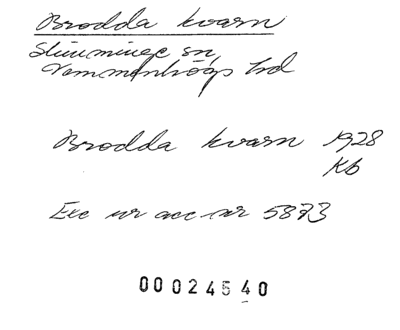 Brodda kvarn
Slimminge sn,
Vemmenhögs hd
Brodda kvarn 1928
Kb
Exc ur acc-nr 5873
00024540